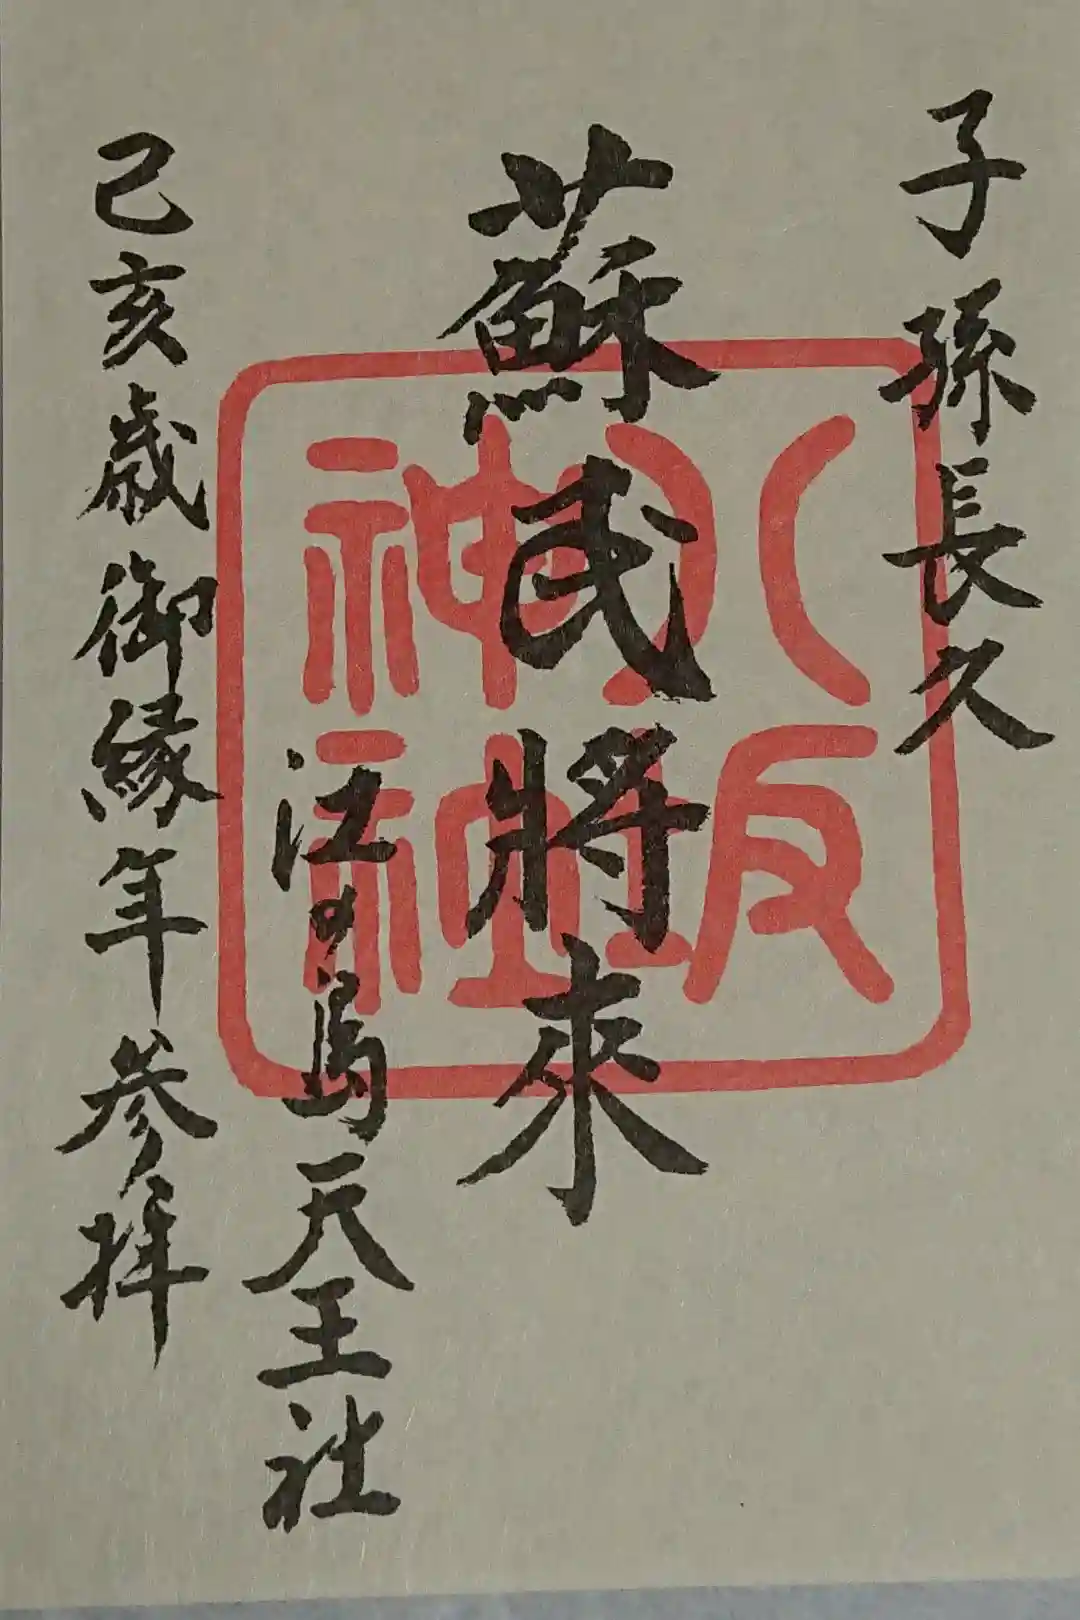 子孫長久
蘇民將來
江の島天王社
己亥歳御縁年参拝
八坂
神社